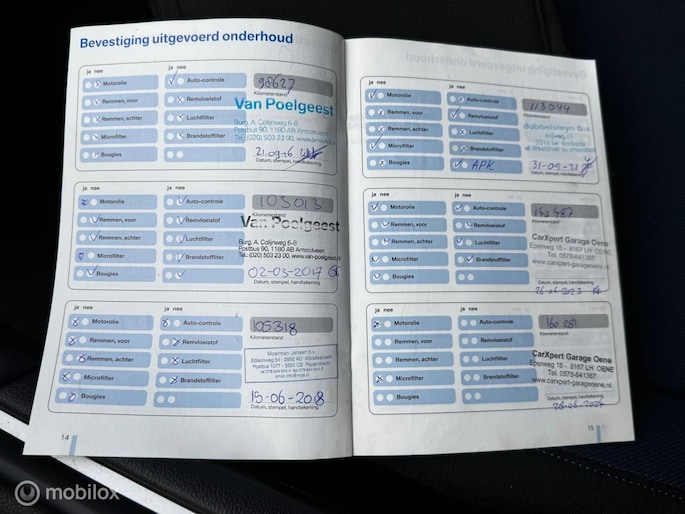 Bevestiging uitgevoerd onderhoud
ja nee ja nee
Motorolie Auto-controle 98627
Remmen, voor Remvloeistof Kilometerstand
Remmen, achter Luchtfilter
Microfilter Brandstoffilter
Bougies
Van Poelgeest
Burg. A. Colijnweg 6-8
Postbus 90, 1180 AB Amstelveen
Tel.: (020) 503 23 00, www.van-poelgeest.nl
21-09-16
Datum, stempel, handtekening
ja nee ja nee
Motorolie Auto-controle 103013
Remmen, voor Remvloeistof Kilometerstand
Remmen, achter Luchtfilter
Microfilter Brandstoffilter
Bougies
Van Poelgeest
Burg. A. Colijnweg 6-8
Postbus 90, 1180 AB Amstelveen
Tel.: (020) 503 23 00, www.van-poelgeest.nl
02-03-2017
Datum, stempel, handtekening
ja nee ja nee
Motorolie Auto-controle 105318
Remmen, voor Remvloeistof Kilometerstand
Remmen, achter Luchtfilter
Microfilter Brandstoffilter
Bougies
Moerman Jansen b.v.
15-06-2018
Datum, stempel, handtekening
14
ja nee ja nee
Motorolie Auto-controle 113044
Remmen, voor Remvloeistof Kilometerstand
Remmen, achter Luchtfilter
Microfilter Brandstoffilter
Bougies APK
31-09-21
Datum, stempel, handtekening
ja nee ja nee
Motorolie Auto-controle
Remmen, voor Remvloeistof Kilometerstand
Remmen, achter Luchtfilter
Microfilter Brandstoffilter
Bougies
CarXpert Garage Oene
Eperweg 18 - 8167 LH OENE
Tel. 0578-641367
carxpert-garageoene.nl
26-06-2023
Datum, stempel, handtekening
ja nee ja nee
Motorolie Auto-controle
Remmen, voor Remvloeistof Kilometerstand
Remmen, achter Luchtfilter
Microfilter Brandstoffilter
Bougies
CarXpert Garage Oene
Eperweg 18 - 8167 LH OENE
Tel. 0578-641367
www.carxpert-garageoene.nl
28-06-2024
Datum, stempel, handtekening
15
mobilox